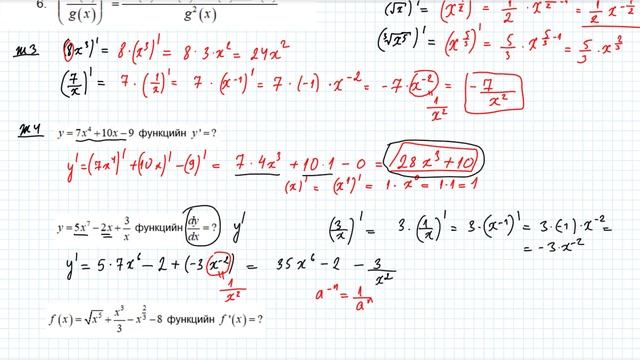 6. [f(x)/g(x)]' = / g²(x)
(√x)' = (x^(1/2))' = 1/2 · x^(1/2-1) = 1/2 x^(-1/2)
(∛x⁵)' = (x^(5/3))' = 5/3 · x^(5/3-1) = 5/3 · x^(2/3)
Ж3 (8x³)' = 8·(x³)' = 8·3·x² = 24x²
(7/x)' = 7·(1/x)' = 7·(x⁻¹)' = 7·(-1)·x⁻² = -7·x⁻² = -7/x²
1/x²
Ж4
y = 7x⁴ + 10x - 9 функцийн y' = ?
y' = (7x⁴)' + (10x)' - (9)' = 7·4x³ + 10·1 - 0 = 28x³ + 10
(x)' = (x¹)' = 1·x⁰ = 1·1 = 1
y = 5x⁷ - 2x + 3/x функцийн dy/dx = ? y'
(3/x)' = 3·(1/x)' = 3·(x⁻¹)' = 3·(-1)·x⁻² =
= -3·x⁻²
y' = 5·7x⁶ - 2 + (-3·x⁻²) = 35x⁶ - 2 - 3/x²
1/x²
a⁻ⁿ = 1/aⁿ
f(x) = √x⁵ + x³/3 - x^(2/3) - 8 функцийн f'(x) = ?